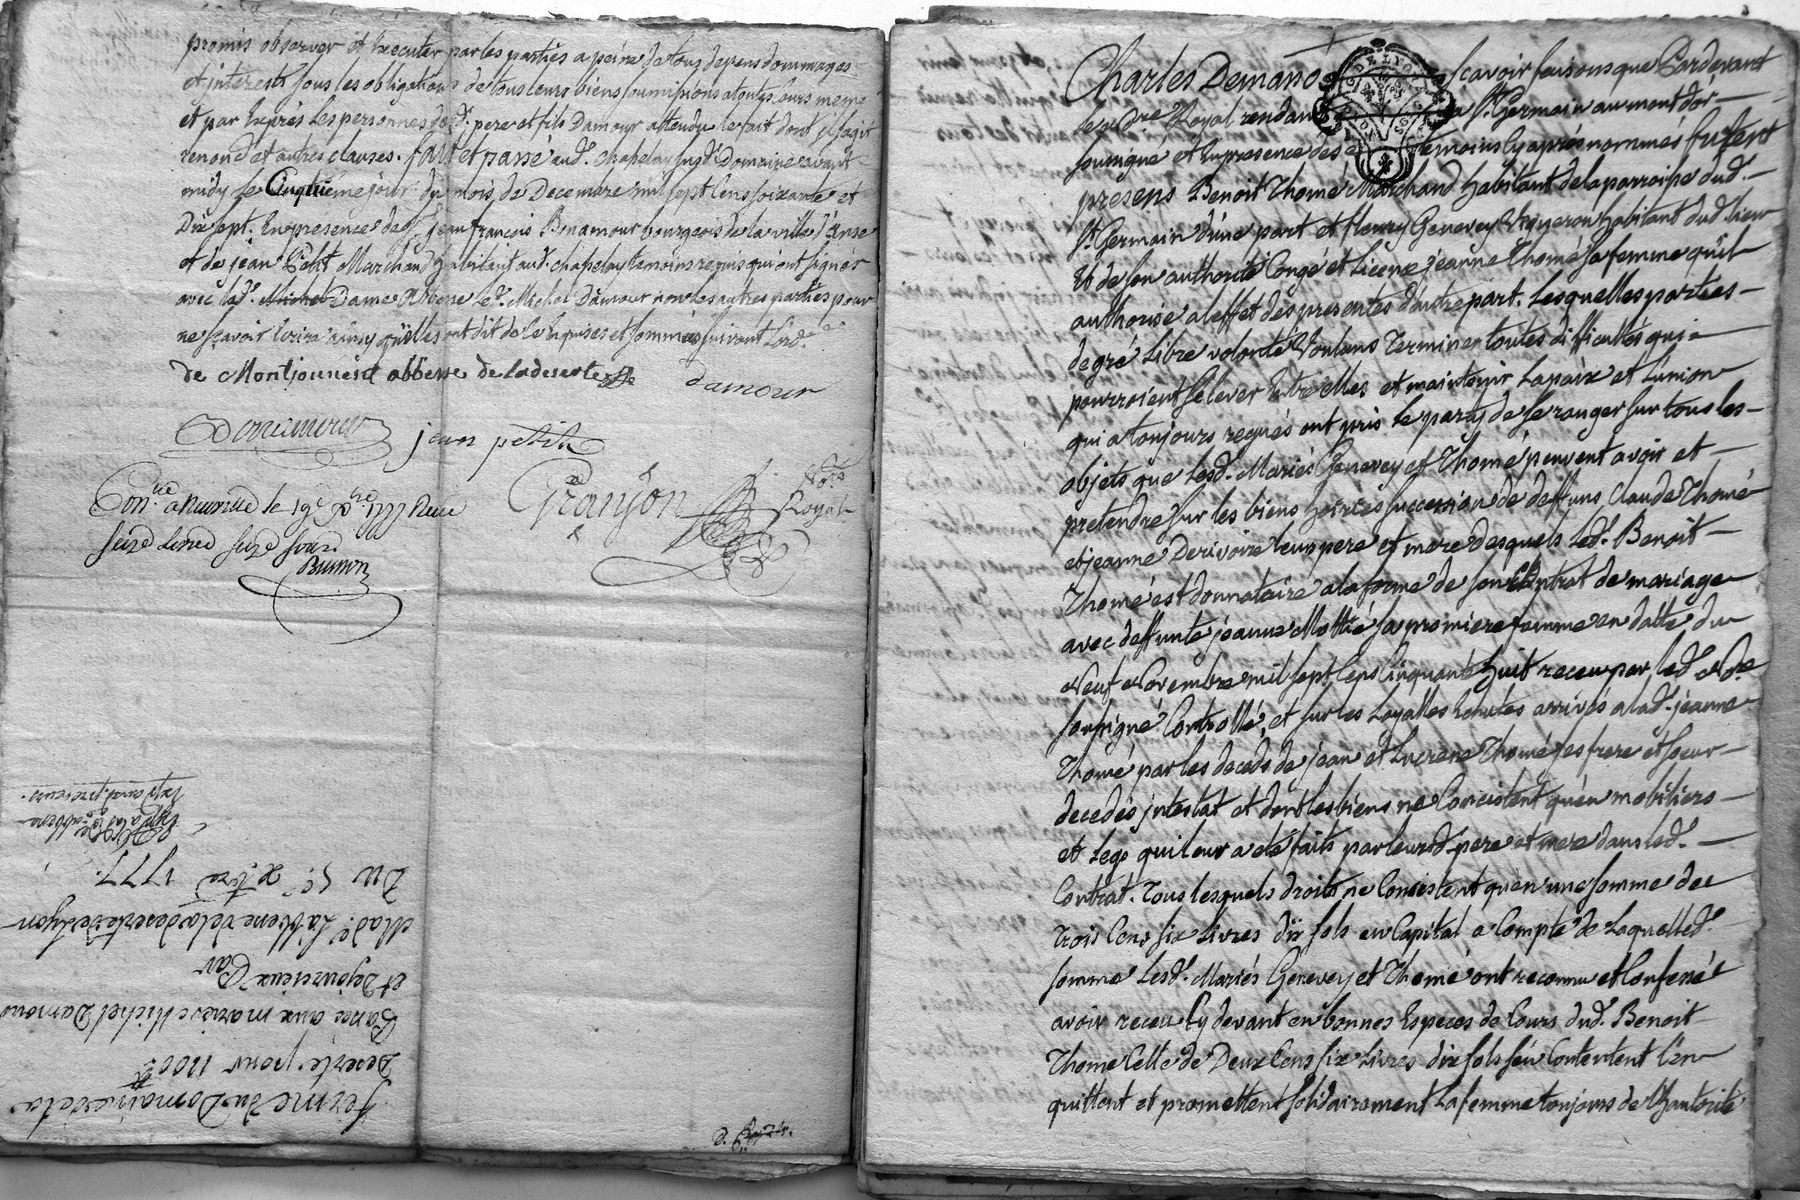 promis observer et Executer par les parties a peine de tous depens dommages
et interests sous les obligations de tous leurs biens soumissions a toutes cours meme
et par Exprés Les personnes desd. pere et fils Damour attendu le fait dont il sagit
renond et autres clauses. fait et passé aud. chapelay susd. Domaine avant
midy le Cinquieme jour du mois de Decembre mil sept Cens soixante et
Dix sept. En presence de jean francois Bonamour bourgeois de la ville d'anse
et de jean Petit Marchand habitant aud. chapelay temoins requis qui ont signes
avec lad. Dame Abbesse led. Michel Damour non les autres parties pour
ne scavoir Ecrire ainsy quelles ont dit de ce Enquises et sommées suivant Lord.ce
de Montjouvent abbesse de la deserte
damour
Bonamour
jean petit
Granjon
Nore
Royal
Con.lle a le 19e Xbre 1777 Recu
seize Livres seize sous
ferme du Domaine de la
Deserte pour 1100 #
Passé aux mariés Michel Damour
et Dejoursieux Par
Made. Labbesse de la deserte de Lyon
Du 5e xbre 1777.
Expd.
Charles Demano scavoir faisons que Pardevant
le No.re Royal a St. Germain au mont dor
soussigné et En presence des temoins cy après nommés furent
presens Benoit Thomé Marchand habitant de la parroisse dud.
St. Germain d'une part et fleury Genevey Vigneron habitant dud. lieu
Et de son authorité Congé et Licence jeanne Thomé sa femme quil
authorise a leffet des presentes dautre part. Lesquelles parties
de gré Libre volonté Voulans Terminer toutes difficultés qui
pourroient selever Entre elles et maintenir La paix et Lunion
qui a toujours regnés ont pris le party de se ranger sur tous les
objets que Lesd. Mariés Genevey et Thomé peuvent avoir et
pretendre sur les biens hoiries succession de deffuns Claude Thomé
et jeanne Derivoire leurs pere et mere desquels Led. Benoit
Thomé est donnataire a la forme de son Contrat de mariage
avec deffunte jeanne Mottié sa premiere femme en datte du
Neuf Novembre mil sept Cens Cinquante huit receu par led. No.re
soussigné Controllé, et sur les Loyalles Echutes arrivés a lad. jeanne
Thomé par les deceds de jean et Lucrece Thomé ses frere et soeur
decedés intestat et dont les biens ne Concistent qu'en mobiliers
et Legs qui leur a eté faits par leursd. pere et mere dans led.
Contrat. Tous lesquels droits ne Concistent qu'en une somme de
Trois Cens six Livres dix sols en Capital a Compte de Laquelled.
somme Lesd. Mariés Genevey et Thomé ont reconnu et Confessé
avoir receu Cy devant en bonnes Especes de Cours dud. Benoit
Thome Celle de Deux Cens six Livres dix sols sen Contentent Len
quittent et promettent solidairement La femme toujours de Lhautorité